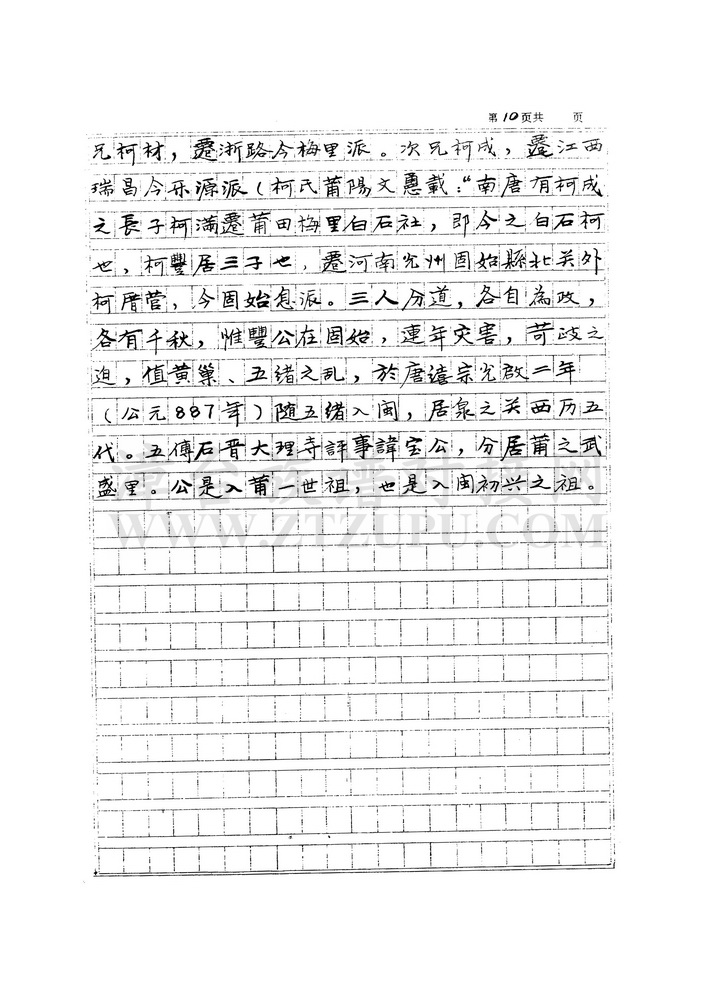 第10页共 页
兄柯材，遷浙路今梅里派。次兄柯成，遷江西
瑞昌今乐源派（柯氏莆陽文惠载：“南唐有柯成
之長子柯满遷莆田梅里白石社，即今之白石柯
也，柯豐居三子也，遷河南光州固始縣北关外
柯厝营，今固始息派。三人分道，各自為政，
各有千秋，惟豐公在固始，連年灾害，苛政之
迫，值黄巢、五绪之乱，於唐僖宗光啟二年
（公元887年）随五绪入闽，居泉之关西历五
代。五傳石晋大理寺評事諱宝公，分居莆之武
盛里。公是入莆一世祖，也是入闽初兴之祖。
漳台族谱对接网
WWW.ZTZUPU.COM